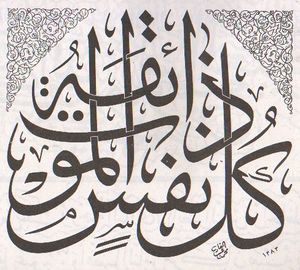 كل نفس ذائقة الموت
١٣٨٣